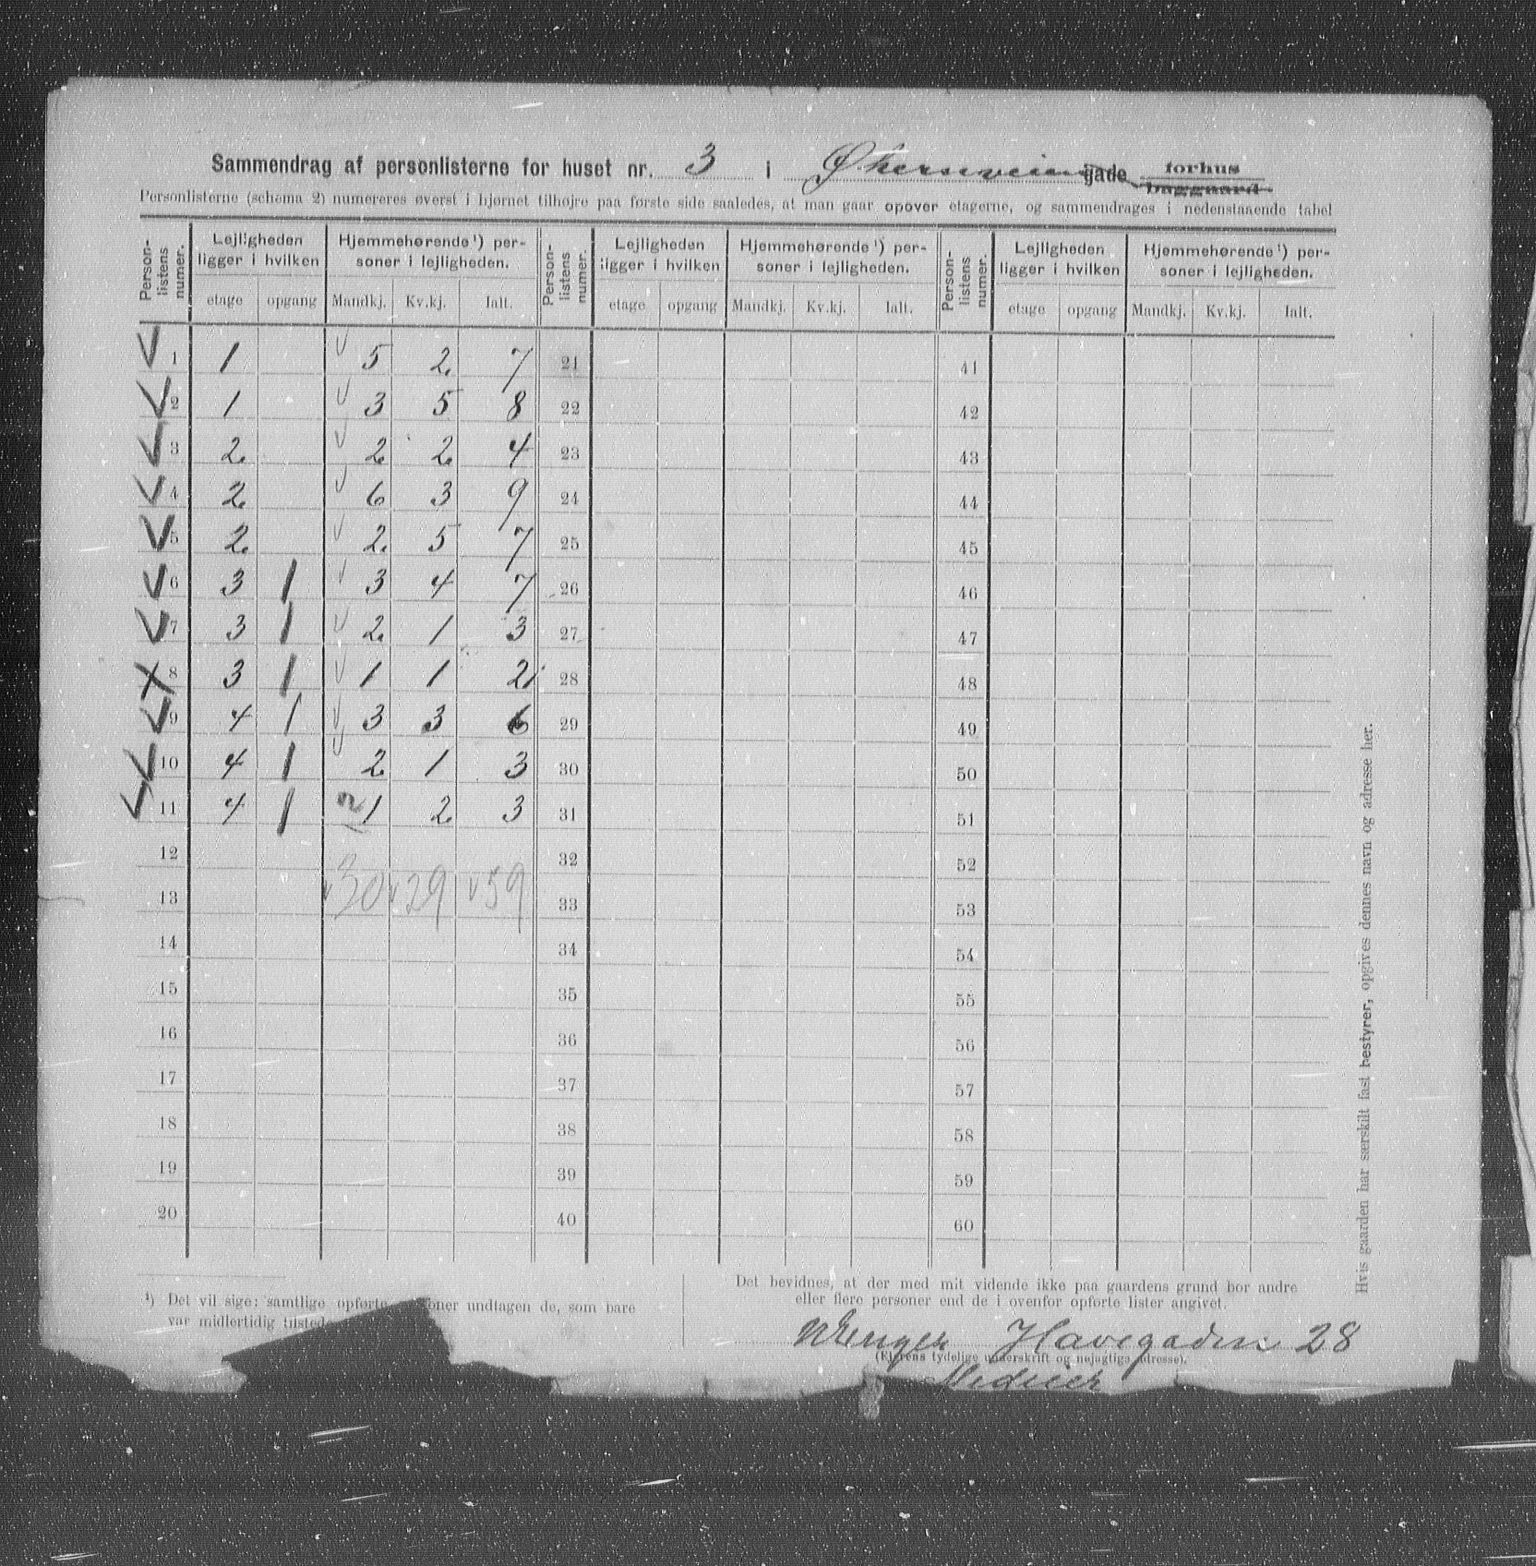 Sammendrag af personlisterne for huset nr. 3 i Økernveien gade forhus baggaard
Personlisterne (schema 2) numereres øverst i hjørnet tilhøjre paa første side saaledes, at man gaar opover etagerne, og sammendrages i nedenstaaende tabel
Person-listens numer. Lejligheden ligger i hvilken etage opgang Hjemmehørende ¹) personer i lejligheden. Mandkj. Kv.kj. Ialt.
Person-listens numer. Lejligheden ligger i hvilken etage opgang Hjemmehørende ¹) personer i lejligheden. Mandkj. Kv.kj. Ialt.
Person-listens numer. Lejligheden ligger i hvilken etage opgang Hjemmehørende ¹) personer i lejligheden. Mandkj. Kv.kj. Ialt.
1 1 5 2 7 21 41
2 1 3 5 8 22 42
3 2 2 2 4 23 43
4 2 6 3 9 24 44
5 2 2 5 7 25 45
6 3 1 3 4 7 26 46
7 3 1 2 1 3 27 47
8 3 1 1 1 2 28 48
9 4 1 3 3 6 29 49
10 4 1 2 1 3 30 50
11 4 1 1 2 3 31 51
12 32 52
13 30 29 59 33 53
14 34 54
15 35 55
16 36 56
17 37 57
18 38 58
19 39 59
20 40 60
¹) Det vil sige: samtlige opførte oner undtagen de, som bare
var midlertidig tilstede
Det bevidnes, at der med mit vidende ikke paa gaardens grund bor andre
eller flere personer end de i ovenfor opførte lister angivet.
Havegaden 28
(Ejerens tydelige underskrift og nøjagtige adresse).
Hvis gaarden har særskilt fast bestyrer, opgives dennes navn og adresse her.